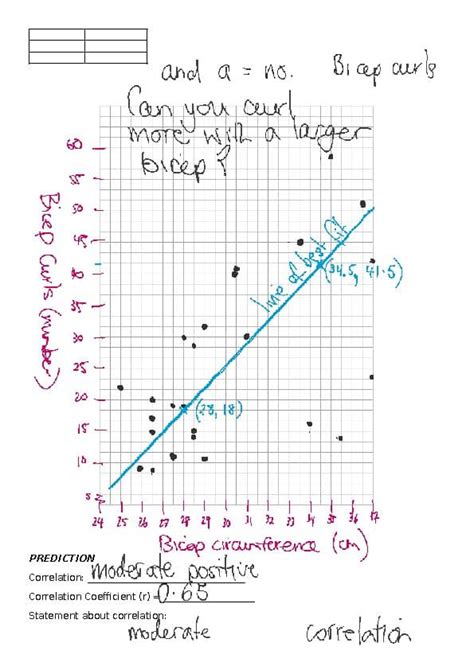 and a = no. Bicep curls
Can you curl
more with a larger
bicep?
60
55
50
45
40
35
30
25
20
15
10
5
Bicep Curls (number)
line of best fit
(34.5, 41.5)
(28, 18)
24 25 26 27 28 29 30 31 32 33 34 35 36 37
Bicep circumference (cm)
PREDICTION
Correlation: moderate positive
Correlation Coefficient (r) = 0.65
Statement about correlation:
moderate correlation